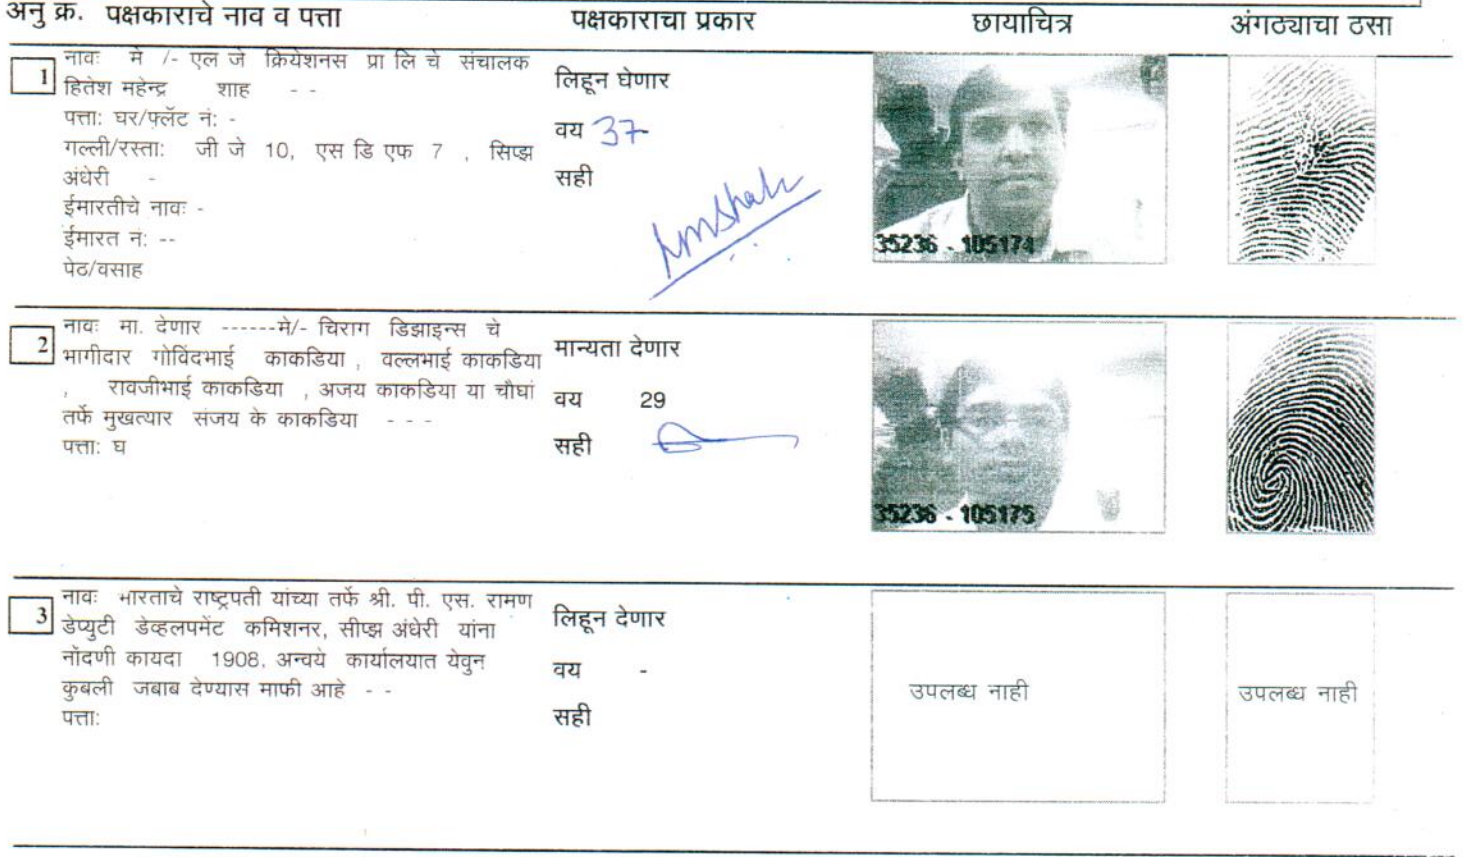 अनु क्र. पक्षकाराचे नाव व पत्ता पक्षकाराचा प्रकार छायाचित्र अंगठ्याचा ठसा
1 नावः मे /- एल जे क्रियेशनस प्रा लि चे संचालक
हितेश महेन्द्र शाह - -
पत्ता: घर/फ्लॅट नं: -
गल्ली/रस्ता: जी जे 10, एस डि एफ 7 , सिप्झ
अंधेरी -
ईमारतीचे नावः -
ईमारत नं: --
पेठ/वसाह
लिहून घेणार
वय 37
सही
hmshah
35236 - 105174
2 नावः मा. देणार ------मे/- चिराग डिझाइन्स चे
भागीदार गोविंदभाई काकडिया , वल्लभाई काकडिया
, रावजीभाई काकडिया , अजय काकडिया या चौघां
तर्फे मुखत्यार संजय के काकडिया - - -
पत्ता: घ
मान्यता देणार
वय 29
सही
35236 - 105175
3 नावः भारताचे राष्ट्रपती यांच्या तर्फे श्री. पी. एस. रामण
डेप्युटी डेव्हलपमेंट कमिशनर, सीप्झ अंधेरी यांना
नोंदणी कायदा 1908. अन्वये कार्यालयात येवुन
कुबली जबाब देण्यास माफी आहे - -
पत्ता:
लिहून देणार
वय -
सही
उपलब्ध नाही
उपलब्ध नाही